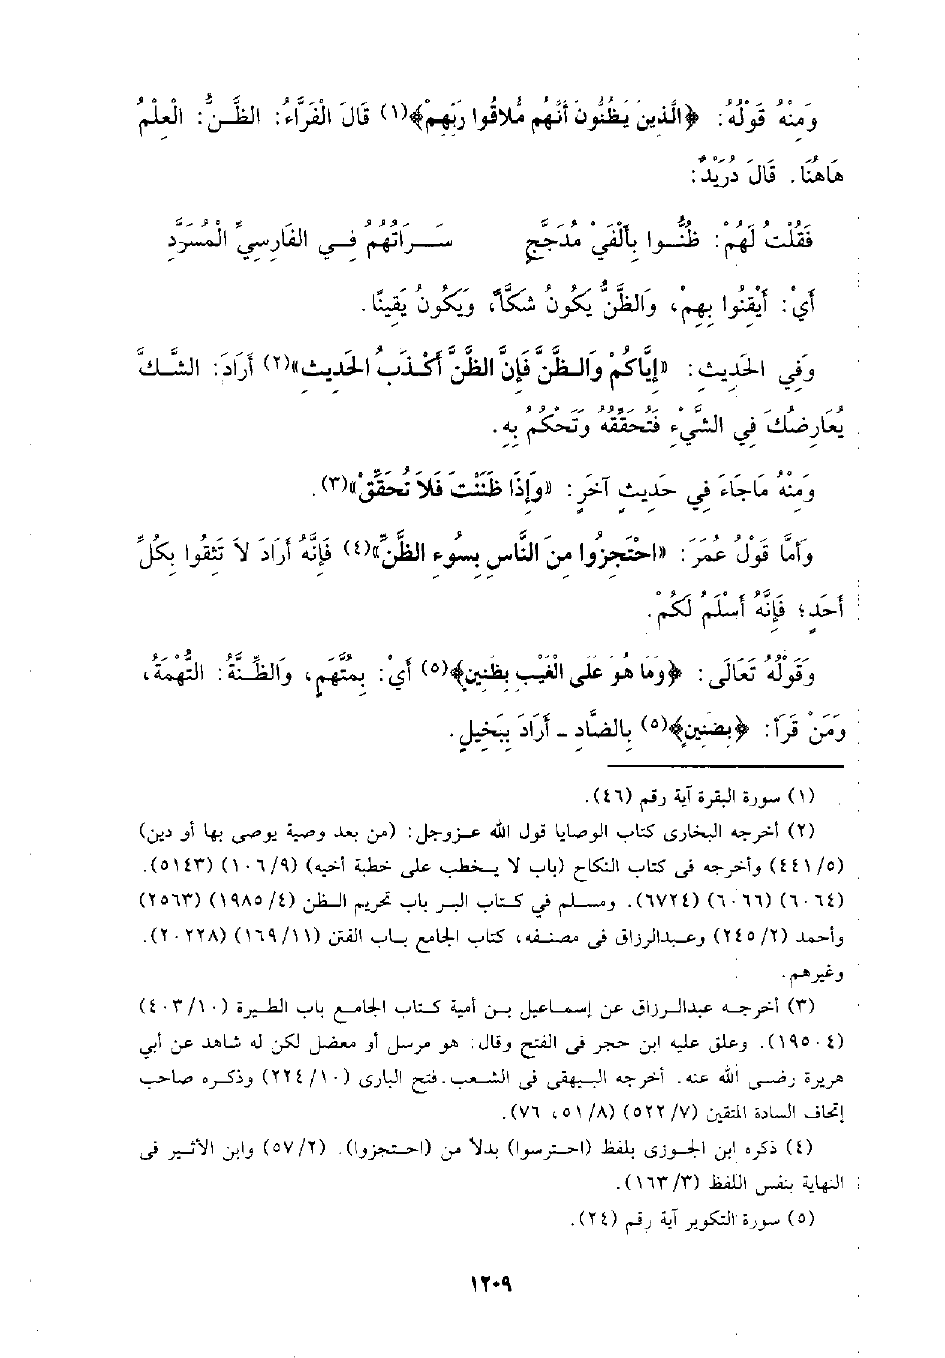 وَمِنْهُ قَوْلُهُ: ﴿الَّذِينَ يَظُنُّونَ أَنَّهُم مُّلَاقُوا رَبِّهِمْ﴾(١) قَالَ الْفَرَّاءُ: الظَّنُّ: الْعِلْمُ
هَاهُنَا. قَالَ دُرَيْدٌ:
فَقُلْتُ لَهُمْ: ظُنُّوا بِأَلْفَيْ مُدَجَّجٍ سَرَاتُهُمُ فِي الفَارِسِيِّ الْمُسَرَّدِ
أَيْ: أَيْقِنُوا بِهِمْ، وَالظَّنُّ يَكُونُ شَكًّا، وَيَكُونُ يَقِينًا.
وَفِي الحَدِيثِ: «إِيَّاكُمْ وَالظَّنَّ فَإِنَّ الظَّنَّ أَكْذَبُ الحَدِيثِ»(٢) أَرَادَ: الشَّكَّ
يُعَارِضُكَ فِي الشَّيْءِ فَتُحَقِّقُهُ وَتَحْكُمُ بِهِ.
وَمِنْهُ مَاجَاءَ فِي حَدِيثٍ آخَرٍ: «وَإِذَا ظَنَنْتَ فَلَا تُحَقِّقْ»(٣).
وَأَمَّا قَوْلُ عُمَرَ: «احْتَجِزُوا مِنَ النَّاسِ بِسُوءِ الظَّنِّ»(٤) فَإِنَّهُ أَرَادَ لَا تَثِقُوا بِكُلِّ
أَحَدٍ؛ فَإِنَّهُ أَسْلَمُ لَكُمْ.
وَقَوْلُهُ تَعَالَى: ﴿وَمَا هُوَ عَلَى الْغَيْبِ بِظَنِينٍ﴾(٥) أَيْ: بِمُتَّهَمٍ، وَالظِّنَّةُ: التُّهْمَةُ،
وَمَنْ قَرَأَ: ﴿بِضَنِينٍ﴾(٥) بِالضَّادِ - أَرَادَ بِبَخِيلٍ.
(١) سورة البقرة آية رقم (٤٦).
(٢) أخرجه البخارى كتاب الوصايا قول الله عزوجل: (من بعد وصية يوصى بها أو دين)
(٤٤١/٥) وأخرجه فى كتاب النكاح (باب لا يخطب على خطبة أخيه) (١٠٦/٩) (٥١٤٣).
(٦٠٦٤) (٦٠٦٦) (٦٧٢٤). ومسلم في كتاب البر باب تحريم الظن (١٩٨٥/٤) (٢٥٦٣)
وأحمد (٢٤٥/٢) وعبدالرزاق فى مصنفه، كتاب الجامع باب الفتن (١٦٩/١١) (٢٠٢٢٨).
وغيرهم.
(٣) أخرجه عبدالرزاق عن إسماعيل بن أمية كتاب الجامع باب الطيرة (٤٠٣/١٠)
(١٩٥٠٤). وعلق عليه ابن حجر فى الفتح وقال: هو مرسل أو معضل لكن له شاهد عن أبي
هريرة رضى الله عنه. أخرجه البيهقى فى الشعب. فتح البارى (٢٢٤/١٠) وذكره صاحب
إتحاف السادة المتقين (٥٢٢/٧) (٥١/٨، ٧٦).
(٤) ذكره ابن الجوزى بلفظ (احترسوا) بدلاً من (احتجزوا). (٥٧/٢) وابن الأثير فى
النهاية بنفس اللفظ (١٦٣/٣).
(٥) سورة التكوير آية رقم (٢٤).
١٢٠٩